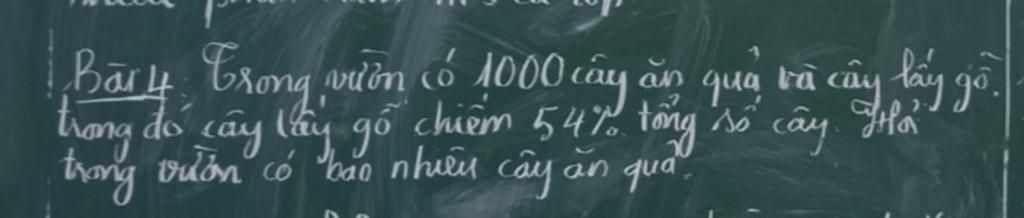 Bài 4. Trong vườn có 1000 cây ăn quả và cây lấy gỗ.
trong đó cây lấy gỗ chiếm 54% tổng số cây. Hỏi
trong vườn có bao nhiêu cây ăn quả.